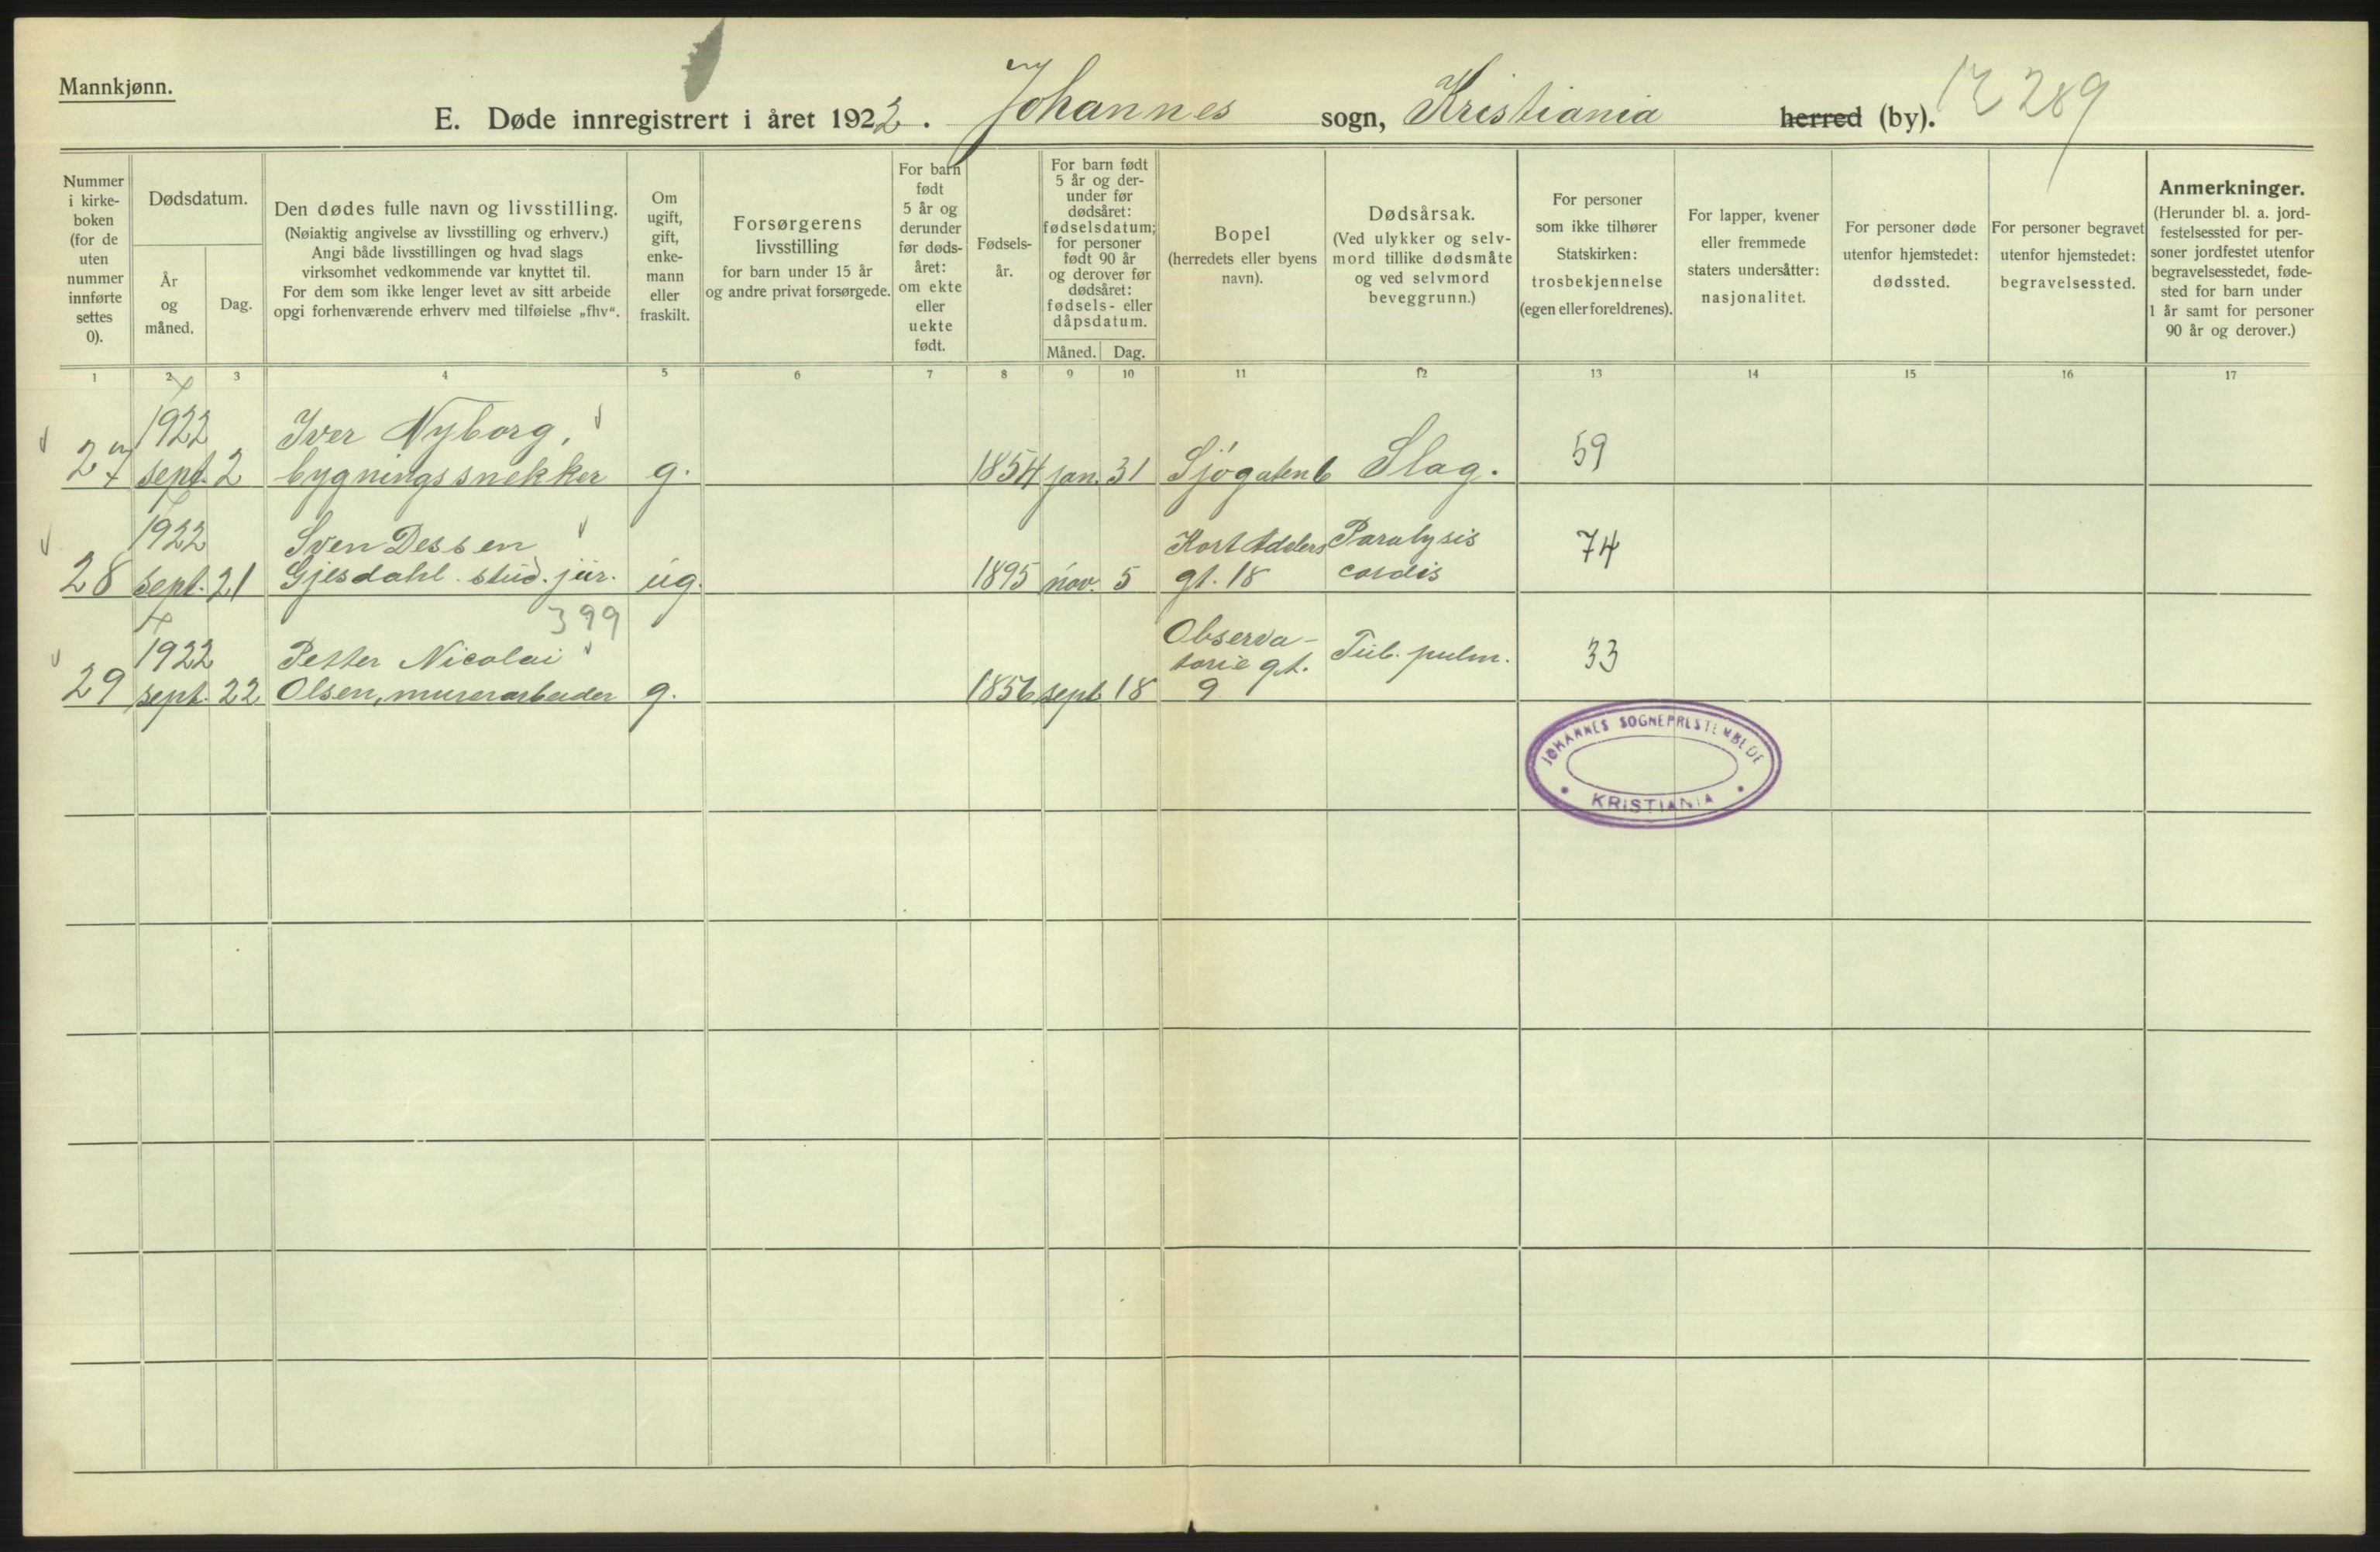 Mannkjønn.
E. Døde innregistrert i året 1922. Johannes sogn, Kristiania herred (by). 289
Nummer i kirke-boken (for de uten nummer innførte settes 0).
Dødsdatum.
År og måned.
Dag.
Den dødes fulle navn og livsstilling.
(Nøiaktig angivelse av livsstilling og erhverv.)
Angi både livsstillingen og hvad slags
virksomhet vedkommende var knyttet til.
For dem som ikke lenger levet av sitt arbeide
opgi forhenværende erhverv med tilføielse „fhv“.
Om ugift, gift, enke-mann eller fraskilt.
Forsørgerens
livsstilling
for barn under 15 år
og andre privat forsørgede.
For barn født 5 år og derunder før døds-året: om ekte eller uekte født.
Fødsels-år.
For barn født 5 år og der-under før dødsåret: fødselsdatum; for personer født 90 år og derover før dødsåret: fødsels- eller dåpsdatum.
Måned. Dag.
Bopel
(herredets eller byens
navn).
Dødsårsak.
(Ved ulykker og selv-
mord tillike dødsmåte
og ved selvmord
beveggrunn.)
For personer
som ikke tilhører
Statskirken:
trosbekjennelse
(egen eller foreldrenes).
For lapper, kvener
eller fremmede
staters undersåtter:
nasjonalitet.
For personer døde
utenfor hjemstedet:
dødssted.
For personer begravet
utenfor hjemstedet:
begravelsessted.
Anmerkninger.
(Herunder bl. a. jord-
festelsessted for per-
soner jordfestet utenfor
begravelsesstedet, føde-
sted for barn under
1 år samt for personer
90 år og derover.)
1 2 3 4 5 6 7 8 9 10 11 12 13 14 15 16 17
1922 Iver Nyborg,
27 sept. 2 bygningssnekker g. 1854 jan. 31 Sjøgaten 6 Slag. 59
1922 Sven Dessen Kort Adelers Paralysis 74
28 sept. 21 Gjesdahl. stud. jur. ug. 1895 nov. 5 gt. 18 cordis
399
1922 Petter Nicolai Observa-
torie gt. Tub. pulm. 33
29 sept. 22 Olsen, murerarbeider g. 1856 sept 18 9
JOHANNES SOGNEPRESTEMBEDE
KRISTIANIA